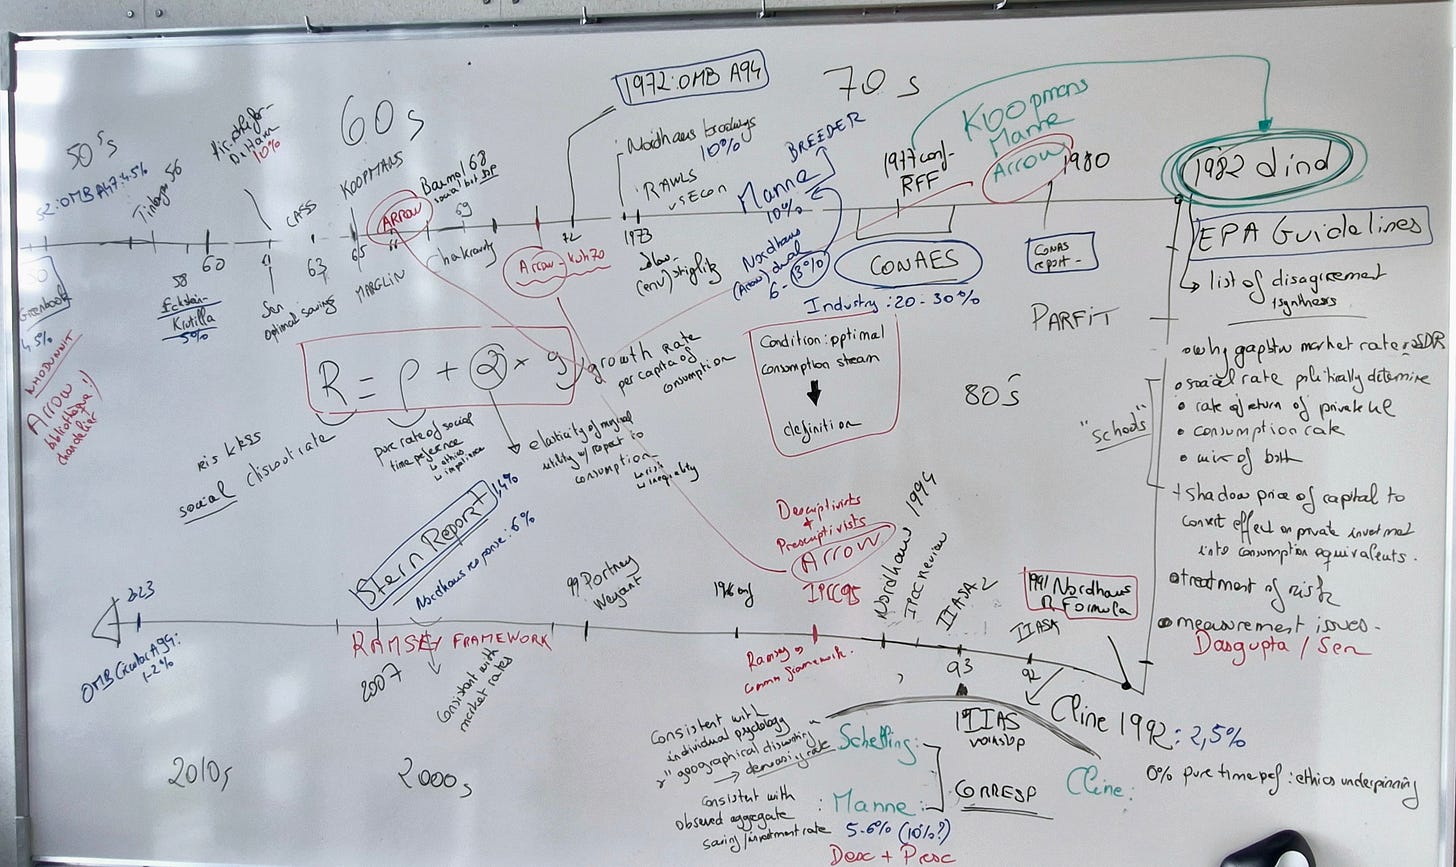 50's
60s
70s
1972: OMB A94
52: OMB A47: 4.5%
Tinbergen 56
10%
CASS
KOOPMANS
ARROW
66
Baumol 68
social
69
Nordhaus
10%
RAWLS
vs Econ
BREEDER
Manne
10%
1977 conf-
RFF
Koopmans
Manne
Arrow
1980
1982 Lind
EPA Guidelines
list of disagreement
+ synthesis
50
Greenbook
4.5%
WHODUNNIT
Arrow
bibliothèque!)
chandelier
58
Eckstein-
Krutilla
5%
60
61
Sen
optimal saving
63
65
MARGLIN
Chakravarty
Arrow-Kurz 70
72
1973
(env) stiglitz
Nordhaus
(Arrow) dual
6-(3%)
CONAES
Industry: 20-30%
CONAES
report-
PARFIT
R = ρ + α × g
growth rate
per capita of
consumption
riskless
social discount rate
pure rate of social
time preference
↳ ethics
↳ impatience
elasticity of marginal
utility w/ respect to
consumption
↳ risk
↳ inequality
Condition: optimal
consumption stream
definition
80's
why gap btw market rate & SDR
"schools"
• social rate politically determine
• rate of return of private
• consumption rate
• mix of both
+ shadow price of capital to
convert effect on private investment
into consumption equivalents.
• treatment of risk
• measurement issues-
Dasgupta / Sen
Stern Report
1,4%
Nordhaus response: 6%
99 Portney
Weyant
Descriptivists
+
Prescriptivists
Arrow
IPCC95
Nordhaus 1994
IPCC Review
IIASA 2
1991 Nordhaus
R Formula
IIASA
2023
OMB Circular A94:
1-2%
RAMSEY FRAMEWORK
2007
Consistent with
market rates
Ramsey
common framework.
93
92
IIAS
workshop
Cline 1992: 2,5%
Consistent with
individual psychology
"geographical discounting"
Schelling:
Consistent with
observed aggregate
saving/investment rate
: Manne:
5-6% (10%?)
Desc + Presc
CORRESP
Cline:
0% pure time pref: ethics underpinning
2010s
2000s